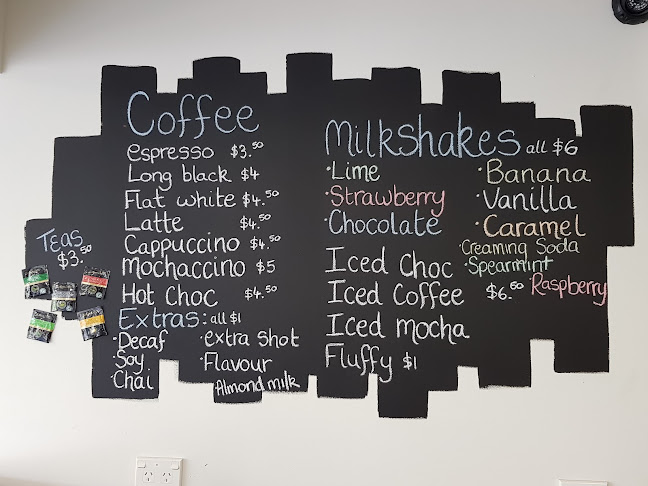 Coffee
espresso $3.50
Long black $4
Flat white $4.50
Latte $4.50
Cappuccino $4.50
Mochaccino $5
Hot Choc $4.50
Extras: all $1
·Decaf ·extra shot
·Soy ·Flavour
·Chai ·Almond milk
Teas
$3.50
Milkshakes all $6
·Lime ·Banana
·Strawberry ·Vanilla
·Chocolate ·Caramel
·Creaming Soda
·Spearmint
·Raspberry
Iced Choc
Iced Coffee $6.50
Iced mocha
Fluffy $1